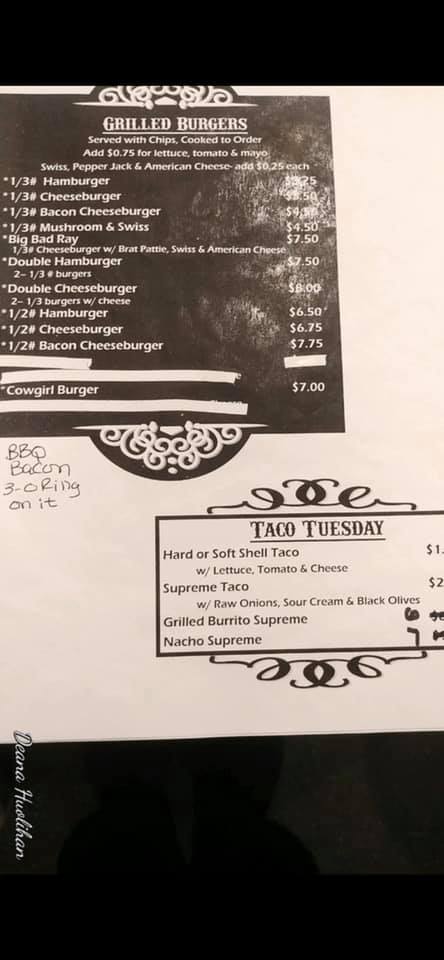 GRILLED BURGERS
Served with Chips, Cooked to Order
Add $0.75 for lettuce, tomato & mayo
Swiss, Pepper Jack & American Cheese- add $0.25 each
*1/3# Hamburger
*1/3# Cheeseburger
*1/3# Bacon Cheeseburger
*1/3# Mushroom & Swiss $4.50
*Big Bad Ray $7.50
1/3# Cheeseburger w/ Brat Pattie, Swiss & American Cheese
*Double Hamburger $7.50
2- 1/3 # burgers
*Double Cheeseburger $8.00
2- 1/3 burgers w/ cheese
*1/2# Hamburger $6.50
*1/2# Cheeseburger $6.75
*1/2# Bacon Cheeseburger $7.75
*Cowgirl Burger $7.00
BBQ
Bacon
3-O Ring
on it
TACO TUESDAY
Hard or Soft Shell Taco $1.
w/ Lettuce, Tomato & Cheese
Supreme Taco $2
w/ Raw Onions, Sour Cream & Black Olives
Grilled Burrito Supreme 6
Nacho Supreme 7
Deana Huolihan